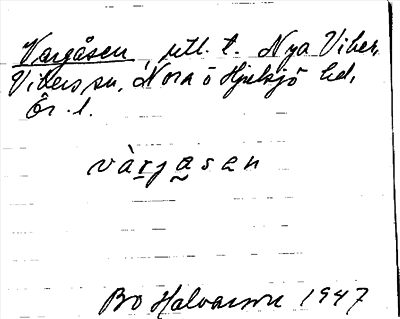 Vargåsen, utl. t. Nya Viker,
Vikers sn, Nora o Hjulsjö hd,
Ör. l.
vàrjasen
Bo Halvarson 1947